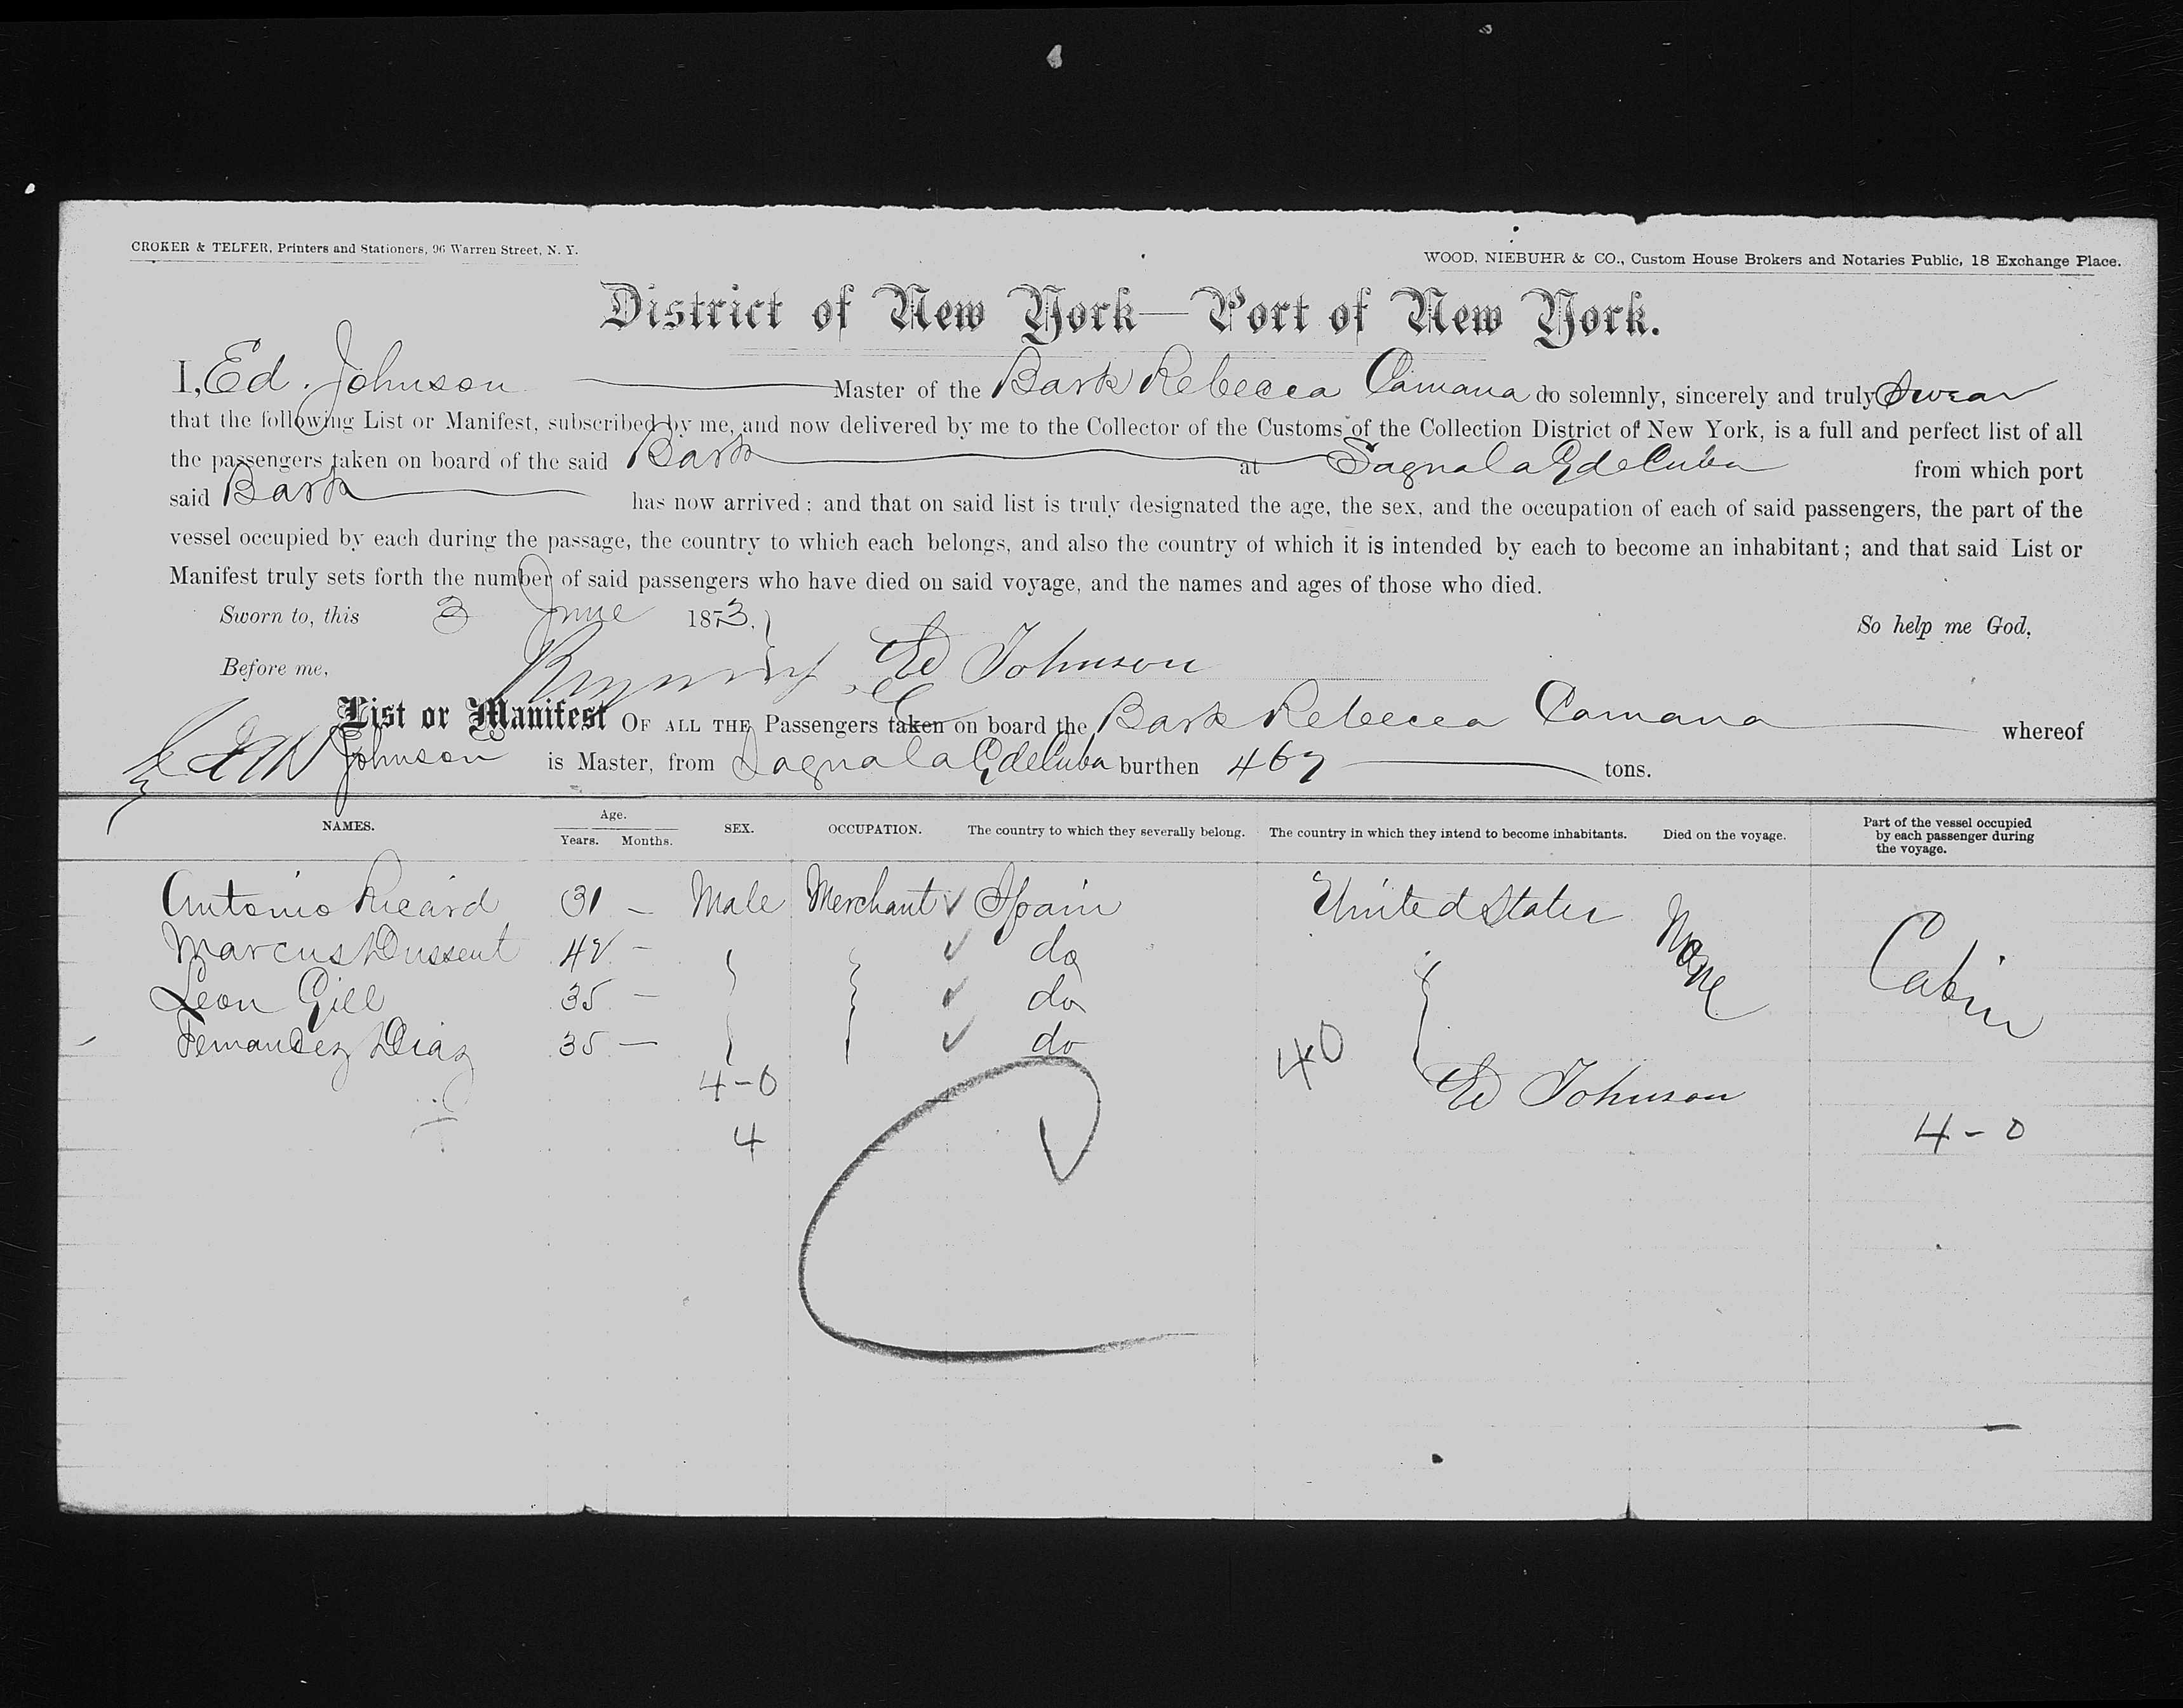 CROKER & TELFER, Printers and Stationers, 96 Warren Street, N. Y.
WOOD, NIEBUHR & CO., Custom House Brokers and Notaries Public, 18 Exchange Place.
District of New York—Port of New York.
I, Ed. Johnson Master of the Bark Rebecca Camana do solemnly, sincerely and truly Swear
that the following List or Manifest, subscribed by me, and now delivered by me to the Collector of the Customs of the Collection District of New York, is a full and perfect list of all
the passengers taken on board of the said Bark at Sagua la G de Cuba from which port
said Bark has now arrived: and that on said list is truly designated the age, the sex, and the occupation of each of said passengers, the part of the
vessel occupied by each during the passage, the country to which each belongs, and also the country of which it is intended by each to become an inhabitant; and that said List or
Manifest truly sets forth the number of said passengers who have died on said voyage, and the names and ages of those who died.
Sworn to, this 3 June 1873. So help me God,
Before me, Ed Johnson
List or Manifest OF ALL THE Passengers taken on board the Bark Rebecca Camana whereof
Johnson is Master, from Sagua la G de Cuba burthen 467 tons.
NAMES. Age. Years. Months. SEX. OCCUPATION. The country to which they severally belong. The country in which they intend to become inhabitants. Died on the voyage. Part of the vessel occupied by each passenger during the voyage.
Antonio Ricard 31 – Male Merchant ✓ Spain United States None Cabin
Marcus Dussent 42 – ✓ do
Leon Gill 35 – ✓ do
Fernandez Diaz 35 – ✓ do
4-0 40 Ed Johnson
4 4-0
C